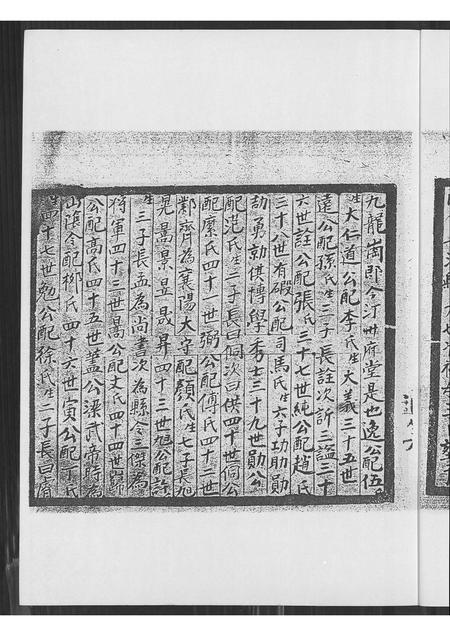 九龍崗即今汀州府堂是也逸公配伍
生大仁道公配李氏生大義三十五世
遠公配孫氏生三子長詮次訢三謐三十
六世詮公配張氏三十七世純公配趙氏
三十八世有碬公配司馬氏生六子功助勛
劼勇勍供博學秀士三十九世勛公
配范氏生二子長曰侗次曰供四十世侗公
配縻氏四十一世弼公配傅氏四十二世
鄰齊為襄陽大守配顏氏生七子長旭
晃暠景昱晟昇四十三世旭公配許
生三子長孟為尚書次為縣令三傑為
將軍四十三世萬公配丈氏四十四世歸
公配高氏四十五世藎公梁武帝時為
山陰令配鄉氏四十六世寅公配丁氏
四十七世勉公配徐氏生二子長曰膚